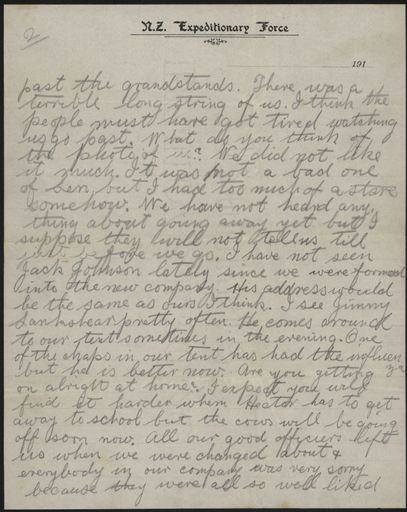 2
N.Z. Expeditionary Force
191
past the grandstands. There was a
terrible long string of us. I think the
people must have got tired watching
us go past. What do you think of
the photo of me? We did not like
it much. It was not a bad one
of Len, but I had too much of a stare
somehow. We have not heard any
thing about going away yet but I
suppose they will not tell us till
just before we go. I have not seen
Jack Johnson lately since we were formed
into the new company. His address would
be the same as ours I think. I see Jimmy
pretty often. He comes around
to our tent sometimes in the evening. One
of the chaps in our tent has had the influenza
but he is better now. Are you getting
on alright at home? I expect you will
find it harder when Hector has to get
away to school but the cows will be going
off soon now. All our good officers left
us when we were changed about &
everybody in our company was very sorry
because they were all so well liked